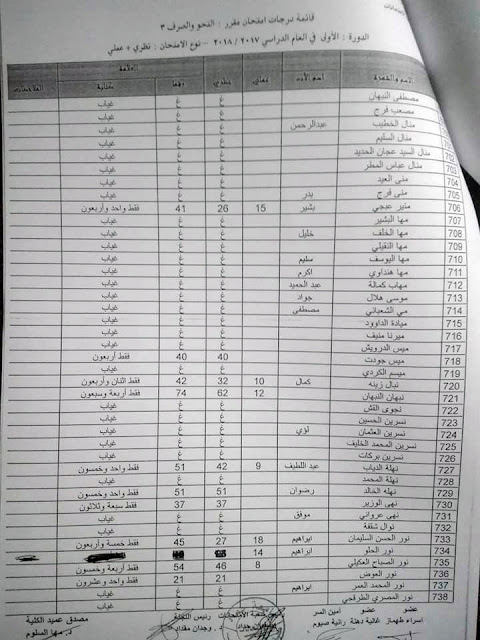 قائمة درجات امتحان مقرر : النحو والصرف ٣
الدورة : الأولى في العام الدراسي ٢٠١٧ / ٢٠١٨ - نوع الامتحان : نظري + عملي
الاسم والشهرة اسم الأب عملي نظري رقما كتابة الملاحظات
العلامة
مصطفى النبهان غ غ غياب
مصعب فرج غ غ غياب
منال الخطيب عبدالرحمن غ غ غياب
منال السليم غ غ غياب
702 منال السيد عجان الحديد غ غ غياب
703 منال عباس المطر غ غ غياب
704 منى العيد غ غ غياب
705 منى فرج بدر غ غ غياب
706 منير عبجي بشير 15 26 41 فقط واحد وأربعون
707 مها البشير غ غ غياب
708 مها الخلف خليل غ غ غياب
709 مها النقيلي غ غ غياب
710 مها اليوسف سليم غ غ غياب
711 مها هنداوي اكرم غ غ غياب
712 مهاب كمالة عبد الحميد غ غ غياب
713 موسى هلال جواد غ غ غياب
714 مي الشعباني مصطفى غ غ غياب
715 ميادة الداوود غ غ غياب
716 ميرنا منيف غ غ غياب
717 ميس الدرويش غ غ غياب
718 ميس جودت 40 40 فقط أربعون
719 ميسم الكردي غ غ غياب
720 نبال زينه كمال 10 32 42 فقط اثنان وأربعون
721 نبهان النبهان 12 62 74 فقط أربعة وسبعون
722 نجوى القش غ غ غياب
723 نسرين الحسين غ غ غياب
724 نسرين العثمان لؤي غ غ غياب
725 نسرين المحمد الخليف غ غ غياب
726 نسرين بركات غ غ غياب
727 نهلة الدياب عبد اللطيف 9 42 51 فقط واحد وخمسون
728 نهلة المحمد غ غ غياب
729 نهلة الخالد رضوان 51 51 فقط واحد وخمسون
730 نهى الوزير 37 37 فقط سبعة وثلاثون
731 نهى عرواني موفق غ غ غياب
732 نوال شقفة غ غ غياب
733 نور الحسن السليمان ابراهيم 18 27 45 فقط خمسة وأربعون
734 نور الحلو ابراهيم 14
735 نور الصباح العكيلي 8 46 54 فقط أربعة وخمسون
736 نور العوض 21 21 فقط واحد وعشرون
737 نور المحمد العمر ابراهيم غ غ غياب
738 نور المصري الطرقجي غ غ غياب
عضو عضو أمين السر شعبة الامتحانات رئيس اللجنة مصدق عميد الكلية
اسراء طهماز غالية دهنة رانية صيوم د. وجدان مقداد د. مها السلوم